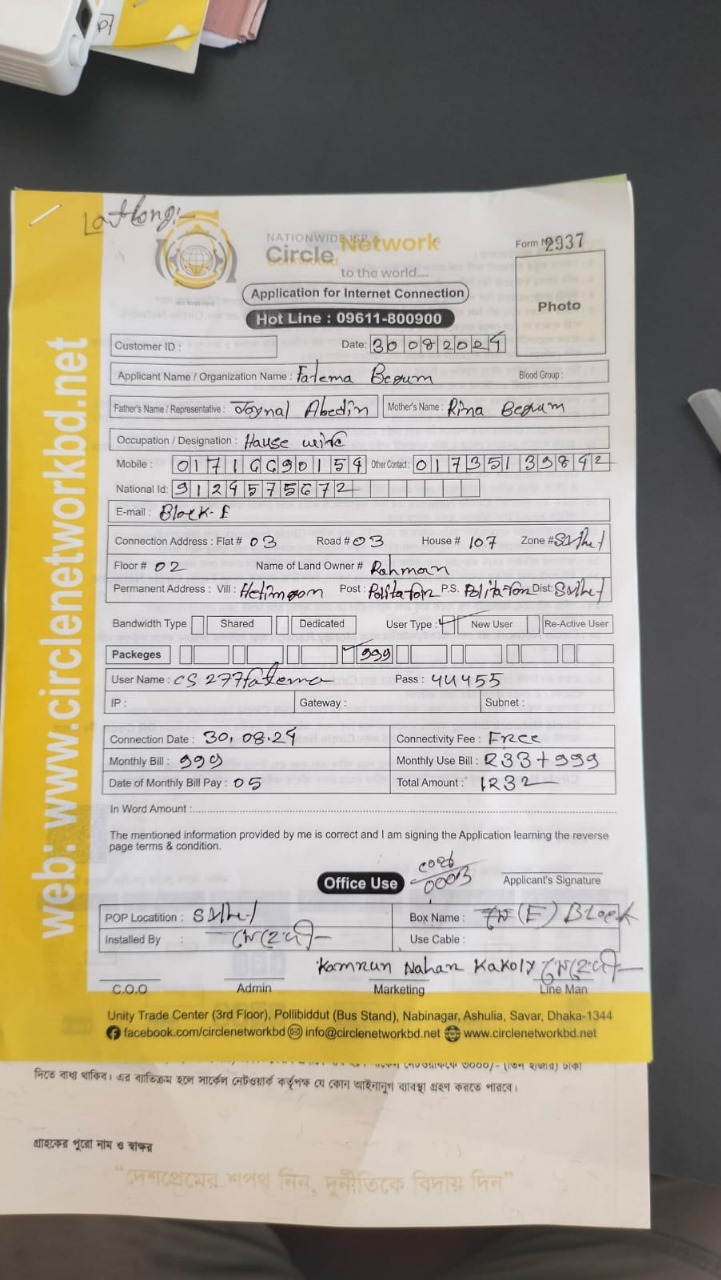 Lat long:-
NATIONWIDE ISP
Circle Network
to the world....
Form № 2937
Application for Internet Connection
Hot Line : 09611-800900
Photo
Customer ID :
Date: 30 08 2024
Applicant Name / Organization Name : Fatema Begum Blood Group :
Father's Name / Representative : Joynal Abedin Mother's Name : Rina Begum
Occupation / Designation : Hause wife
Mobile : 01716690154 Other Contact : 01735139842
National Id: 9124575672
E-mail : Block-E
Connection Address : Flat # 03 Road # 03 House # 107 Zone # Sylhet
Floor # 02 Name of Land Owner # Rahman
Permanent Address : Vill : Post : P.S. Dist: Sylhet
Bandwidth Type Shared Dedicated User Type : New User Re-Active User
Packeges 999
User Name : CS277fatema Pass : 44455
IP : Gateway : Subnet :
Connection Date : 30, 08.24 Connectivity Fee : Free
Monthly Bill : 999 Monthly Use Bill : 233+999
Date of Monthly Bill Pay : 05 Total Amount : 1232
In Word Amount :
The mentioned information provided by me is correct and I am signing the Application learning the reverse
page terms & condition.
Office Use Applicant's Signature
POP Locatition : Sylhet Box Name : (E) Block
Installed By : মেহেদী Use Cable :
Kamrun Nahar Kakoly মেহেদী
C.O.O Admin Marketing Line Man
Unity Trade Center (3rd Floor), Pollibiddut (Bus Stand), Nabinagar, Ashulia, Savar, Dhaka-1344
facebook.com/circlenetworkbd info@circlenetworkbd.net www.circlenetworkbd.net
web: www.circlenetworkbd.net
দিতে বাধ্য থাকিব। এর ব্যতিক্রম হলে সার্কেল নেটওয়ার্ক কর্তৃপক্ষ যে কোন আইনানুগ ব্যাবস্থা গ্রহণ করতে পারবে।
গ্রাহকের পুরো নাম ও স্বাক্ষর
“দেশপ্রেমের শপথ নিন, দুর্নীতিকে বিদায় দিন”